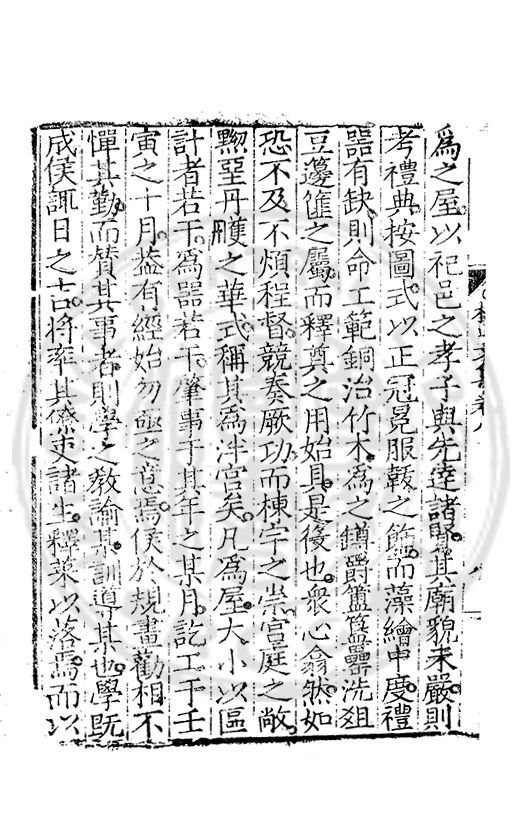 爲之屋。以祀邑之孝子與先逹諸賢。其廟貌未嚴。則
考禮典。按圖式。以正冠冕服韍之飾。而藻繪中度。禮
噐有缺。則命工範銅治竹木。爲之罇爵簠簋罍洗俎
豆籩篚之屬。而釋奠之用始具。是役也。衆心翕然。如
恐不及。不煩程督。競奏厥功。而棟宇之崇。宫庭之敞。
黝堊丹雘之華。式稱其爲泮宮矣。凡爲屋大小以區
計者若干。爲噐若干。肇事于某年之某月。訖工于壬
寅之十月。葢有經始勿亟之意焉。侯於規畫勸相。不
憚其勤。而贊其事者。則學之敎諭某。訓導某也。學旣
成。侯諏日之吉。將率其僚吏諸生。釋菜以落焉。而以